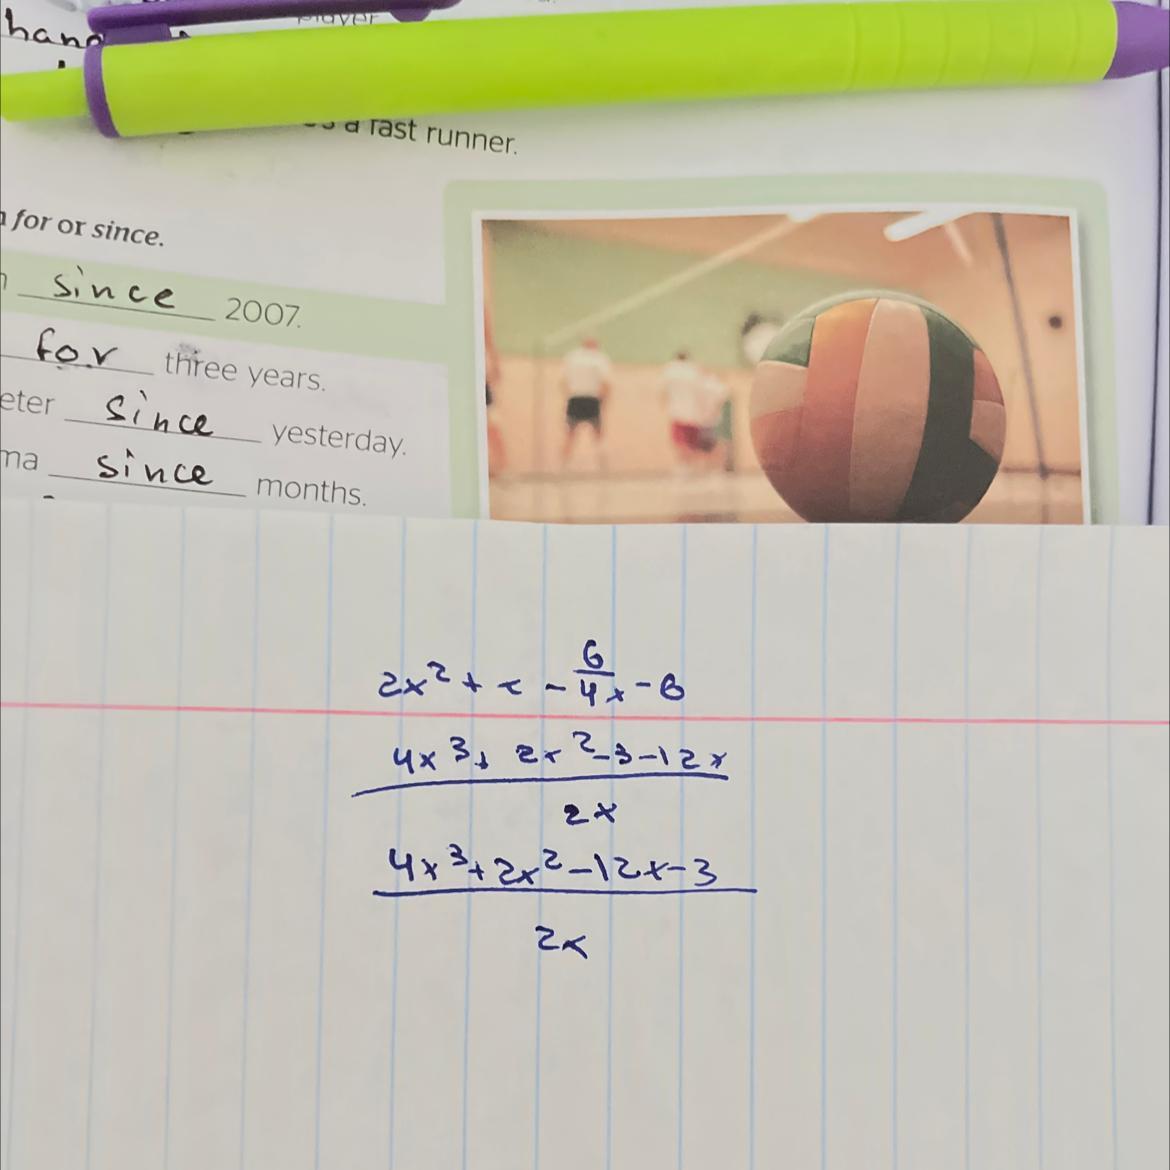 hand
player
a fast runner.
for or since.
since 2007.
for three years.
eter since yesterday.
ma since months.
2x² + x - 6/4x - 6
4x³ + 2x² - 3 - 12x
2x
4x³ + 2x² - 12x - 3
2x